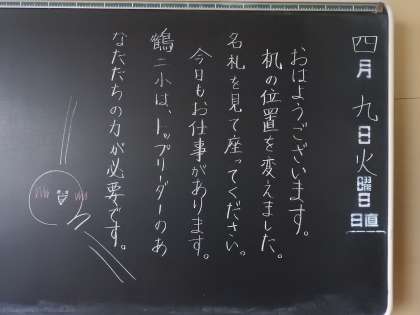 四月九日火曜日
日直
おはようございます。
机の位置を変えました。
名札を見て座ってください。
今日もお仕事があります。
鶴二小は、トップリーダーのあ
なたたちの力が必要です。